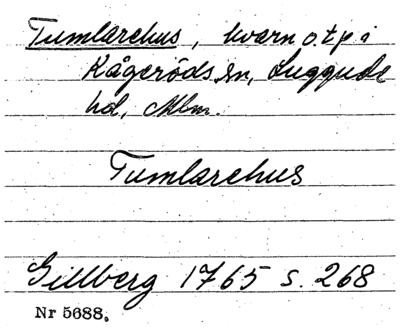 Tumlarehus, kvarn o. tp i
Kågeröds sn, Luggude
hd, Mlm.
Tumlarehus
Gillberg 1765 s. 268
Nr 5688.